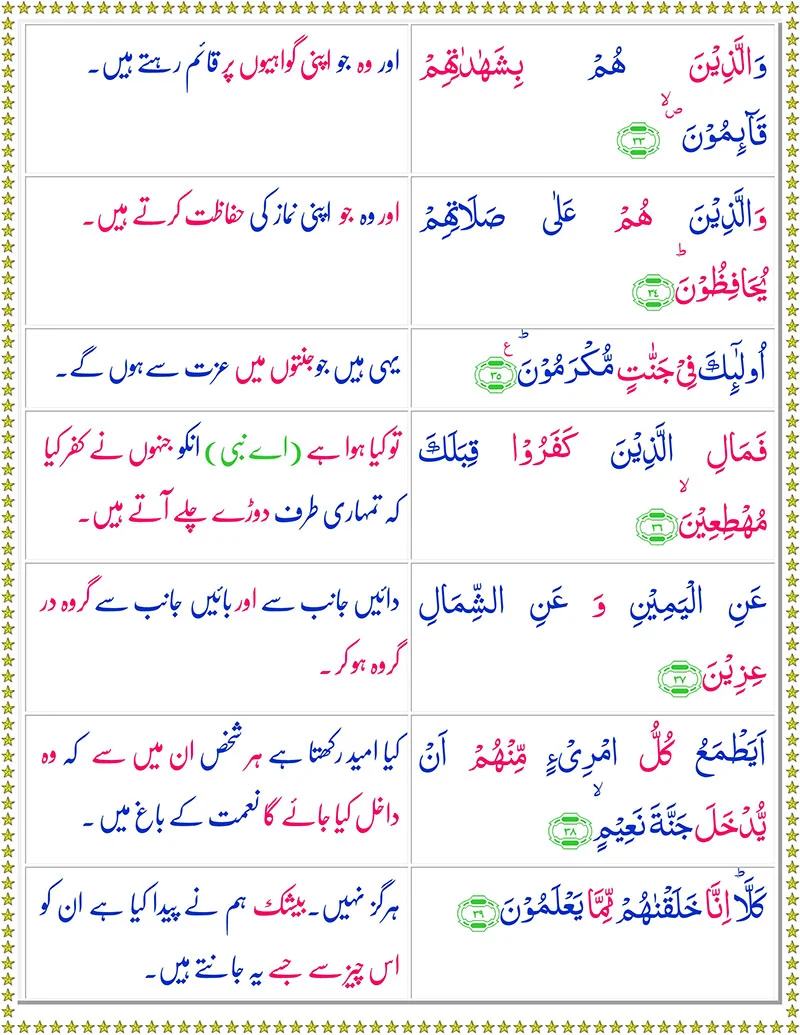 وَالَّذِیْنَ هُمْ بِشَهٰدٰتِهِمْ
قَآىِٕمُوْنَ ۪ۙ ٣٣
اور وہ جو اپنی گواہیوں پر قائم رہتے ہیں۔
وَالَّذِیْنَ هُمْ عَلٰی صَلَاتِهِمْ
یُحَافِظُوْنَ ؕ ٣٤
اور وہ جو اپنی نماز کی حفاظت کرتے ہیں۔
اُولٰٓىِٕكَ فِیْ جَنّٰتٍ مُّكْرَمُوْنَ ؕ ع ٣٥
یہی ہیں جو جنتوں میں عزت سے ہوں گے۔
فَمَالِ الَّذِیْنَ كَفَرُوْا قِبَلَكَ
مُهْطِعِیْنَ ۙ ٣٦
تو کیا ہوا ہے (اے نبی) انکو جنہوں نے کفر کیا
کہ تمہاری طرف دوڑے چلے آتے ہیں۔
عَنِ الْیَمِیْنِ وَ عَنِ الشِّمَالِ
عِزِیْنَ ٣٧
دائیں جانب سے اور بائیں جانب سے گروہ در
گروہ ہو کر ۔
اَیَطْمَعُ كُلُّ امْرِیٴٍ مِّنْهُمْ اَنْ
یُّدْخَلَ جَنَّةَ نَعِیْمٍ ۙ ٣٨
کیا امید رکھتا ہے ہر شخص ان میں سے کہ وہ
داخل کیا جائے گا نعمت کے باغ میں ۔
كَلَّا ؕ اِنَّا خَلَقْنٰهُمْ مِّمَّا یَعْلَمُوْنَ ٣٩
ہرگز نہیں۔ بیشک ہم نے پیدا کیا ہے ان کو
اس چیز سے جسے یہ جانتے ہیں۔